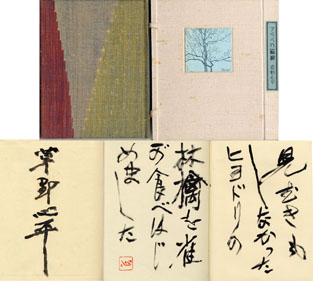 見むきも
しなかった
ヒヨドリの
林檎を雀
が食べはじ
めました
草野心平